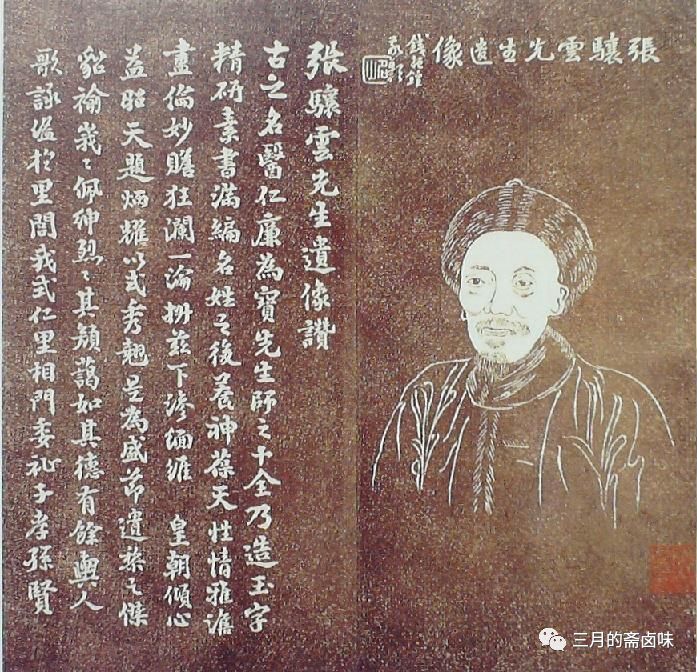 張驤雲先生遺像
張驤雲先生遺像讚
古之名醫仁廉為寶先生師之十全乃造玉字
精研素書滿編名姓之後養神葆天性情雅澹
畫倫妙 狂瀾一淪 茲下滲緬維 皇朝傾心
益昭天題炳耀以式秀翹是為盛節遺榮之傑
佩紳 其 藹如其德有餘輿人
歌詠溢於里閭我式仁里相門委祉子孝孫賢
三月的斋卤味